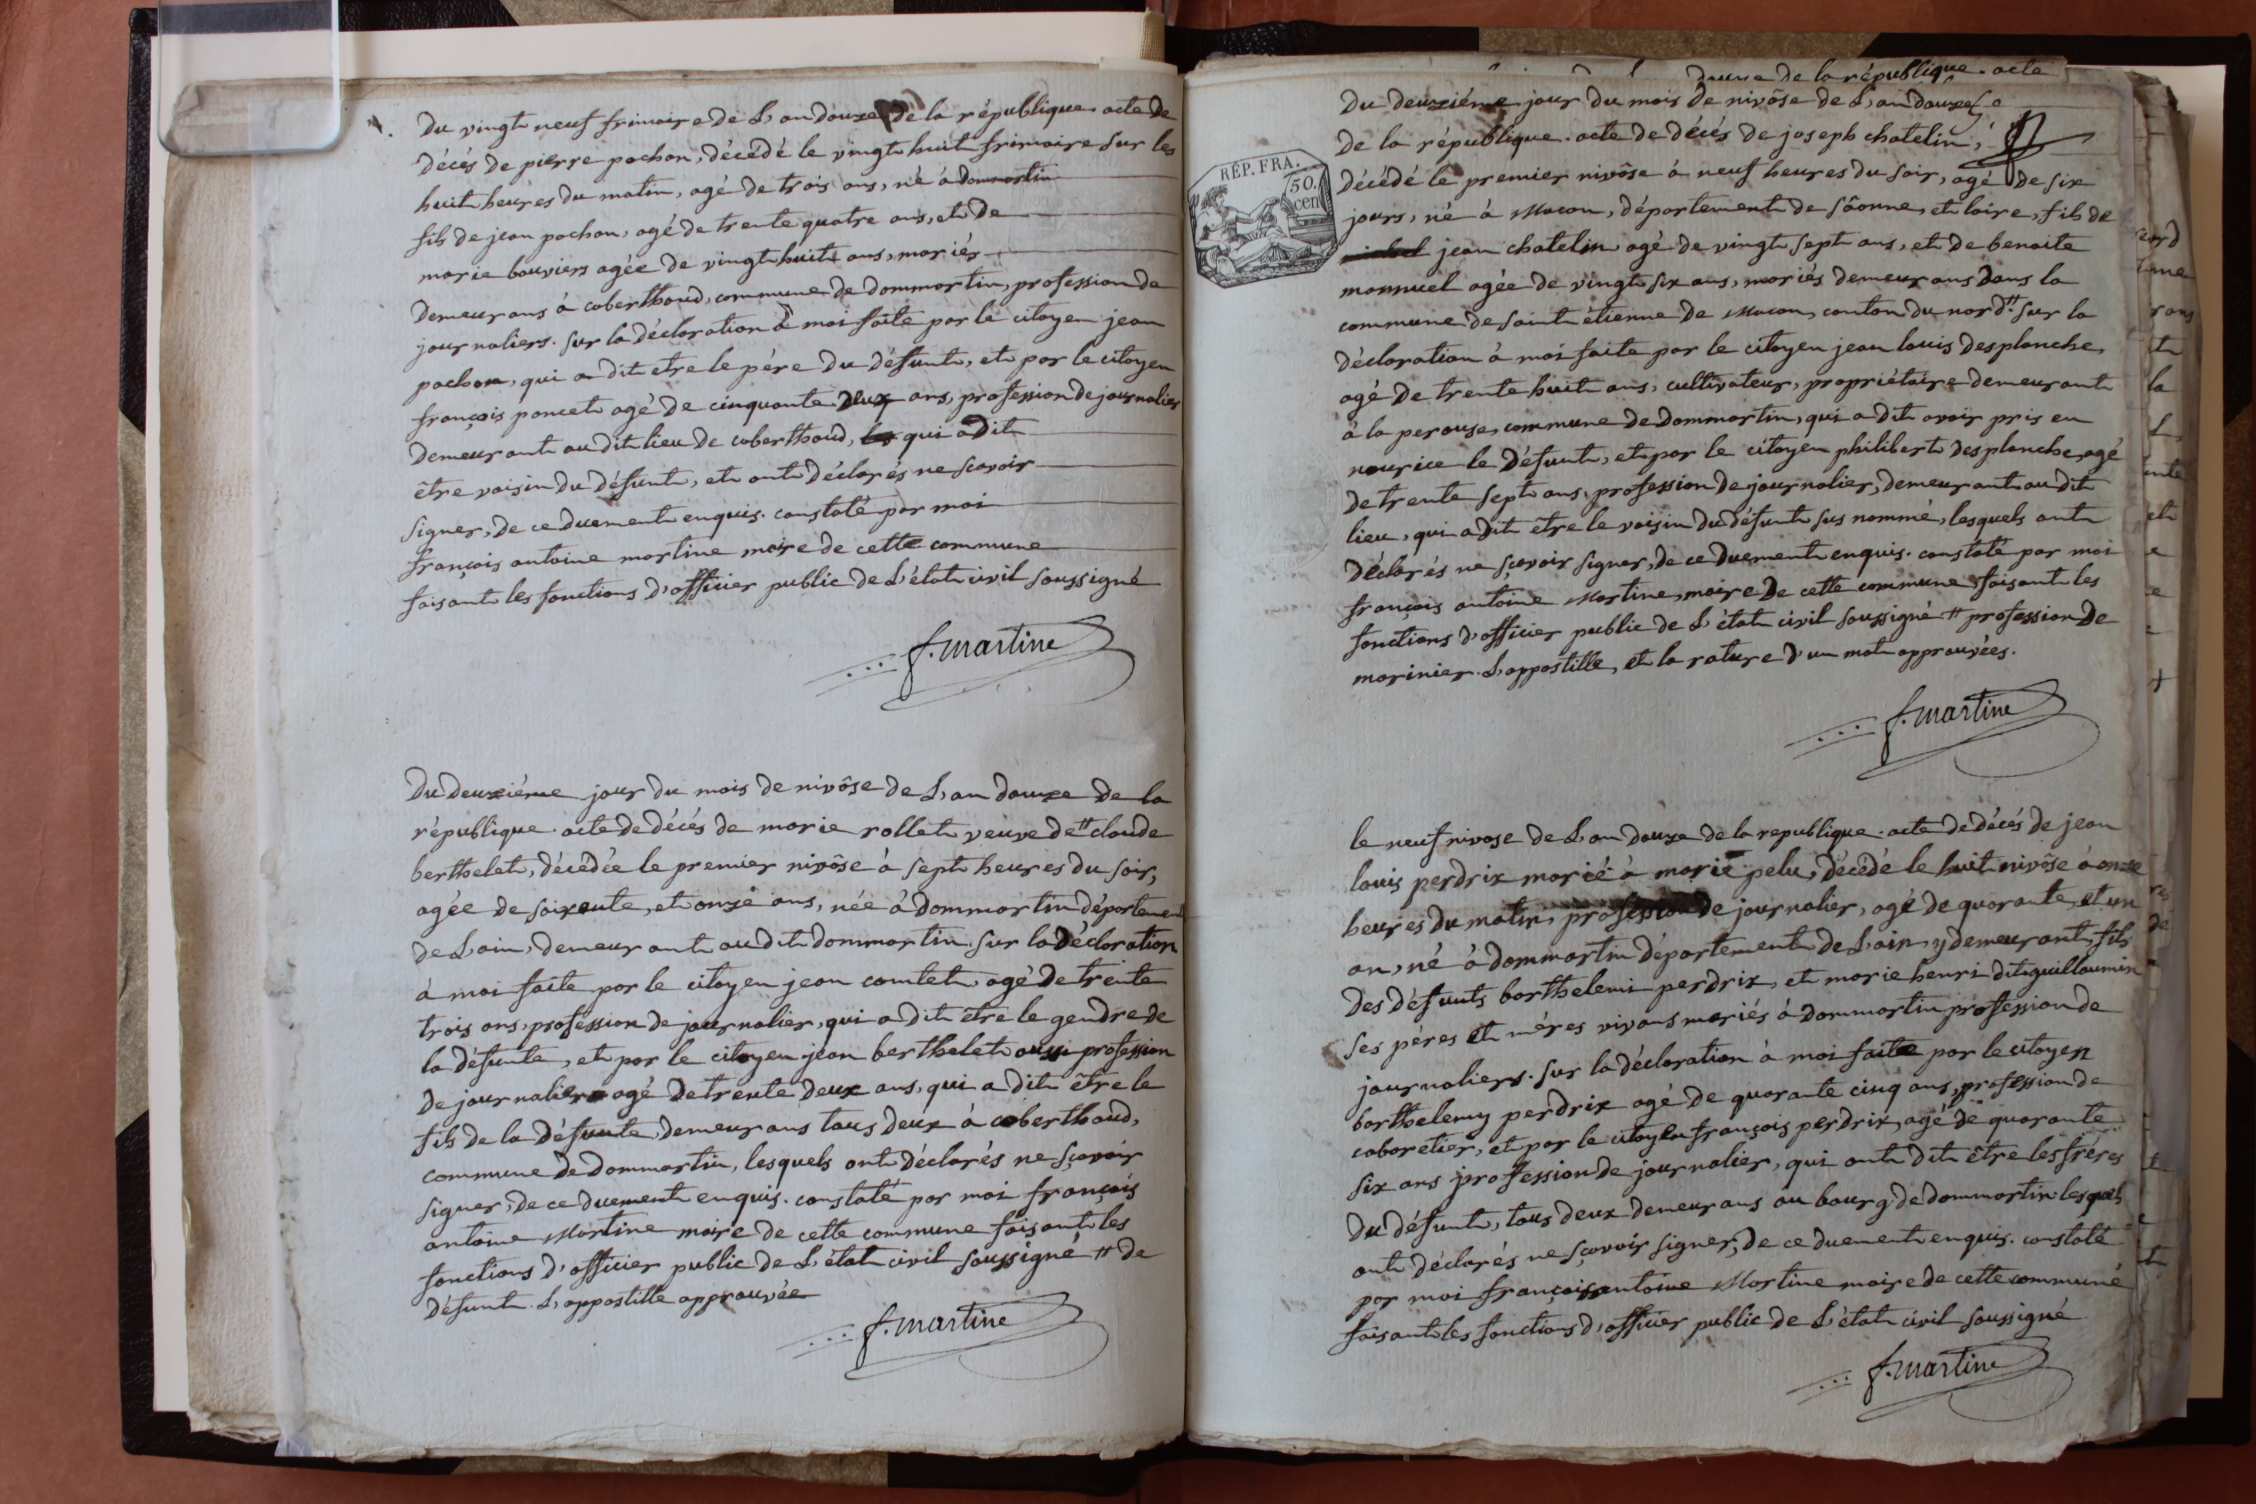 Du vingt neuf frimaire de L'an douze de la république. acte de
décés de pierre pochon, décédé le vingt huit frimaire sur les
huit heures du matin, agé de trois ans, né à dommartin
fils de jean pochon, agé de trente quatre ans, et de
marie bouviers agée de vingt huit ans, mariés
demeurans à coberthoud, commune de dommartin, profession de
journaliers. sur la déclaration à moi faite par le citoyen jean
pochon, qui a dit etre le pére du défunt, et par le citoyen
françois poncet agé de cinquante deux ans, profession de journalier
demeurant au dit lieu de coberthoud, qui a dit
être voisin du défunt, et ont déclarés ne sçavoir
signer, de ce duement enquis. constaté par moi
françois antoine martine maire de cette commune
faisant les fonctions d'officier public de L'état civil soussigné
f. martine
Du deuxiéme jour du mois de nivôse de L'an douze de la
république. acte de décés de marie rollet veuve de # claude
berthelet, décédée le premier nivôse à sept heures du soir,
agée de soixante, et onze ans, née à dommartin département
de L'ain, demeurant au dit dommartin. sur la déclaration
à moi faite par le citoyen jean comtet agé de trente
trois ans, profession de journalier, qui a dit être le gendre de
la défunte, et par le citoyen jean berthelet aussi profession
de journalier agé de trente deux ans, qui a dit être le
fils de la défunte, demeurans tous deux à coberthoud,
commune de dommartin, lesquels ont déclarés ne sçavoir
signer, de ce duement enquis. constaté par moi françois
antoine Martine maire de cette commune faisant les
fonctions d'officier public de L'état civil soussigné # de
défunt. L'appostille approuvée
f. martine
douze de la république. acte
Du deuxiéme jour du mois de nivôse de L'an douze
de la république. acte de décés de joseph chatelin,
RÉP. FRA.
50.
cen
décédé le premier nivôse à neuf heures du soir, agé de six
jours, né à Macon, département de sâonne, et loire, fils de
jean chatelin agé de vingt sept ans, et de benoite
monnuel agée de vingt six ans, mariés demeurans dans la
commune de saint étienne de Macon, canton du nord # sur la
déclaration à moi faite par le citoyen jean louis desplanche,
agé de trente huit ans, cultivateur, propriétaire demeurant
à la perouse, commune de dommartin, qui a dit avoir pris en
nourice le défunt, et par le citoyen philibert desplanche, agé
de trente sept ans, profession de journalier, demeurant au dit
lieu, qui a dit etre le voisin du défunt sus nommé, lesquels ont
déclarés ne sçavoir signer, de ce duement enquis. constaté par moi
françois antoine Martine, maire de cette commune faisant les
fonctions d'officier public de L'état civil soussigné # profession de
marinier. L'appostille, et la rature d'un mot approuvées.
f. martine
le neuf nivose de L'an douze de la republique. acte de décés de jean
louis perdrix marié à marie pelu, décédé le huit nivôse à onze
heures du matin, profession de journalier, agé de quarante, et un
an, né à dommartin département de L'ain, y demeurant, fils
des défunts barthelemi perdrix, et marie henri dit guillaumin
ses péres et méres vivans mariés à dommartin profession de
journaliers. sur la déclaration à moi faite par le citoyen
barthelemy perdrix agé de quarante cinq ans, profession de
cabaretier, et par le citoyen françois perdrix, agé de quarante
six ans profession de journalier, qui ont dit être les fréres
du défunt, tous deux demeurans au bourg de dommartin lesquels
ont déclarés ne sçavoir signer, de ce duement enquis. constaté
par moi françois antoine Martine maire de cette commune
faisant les fonctions d'officier public de L'état civil soussigné
f. martine